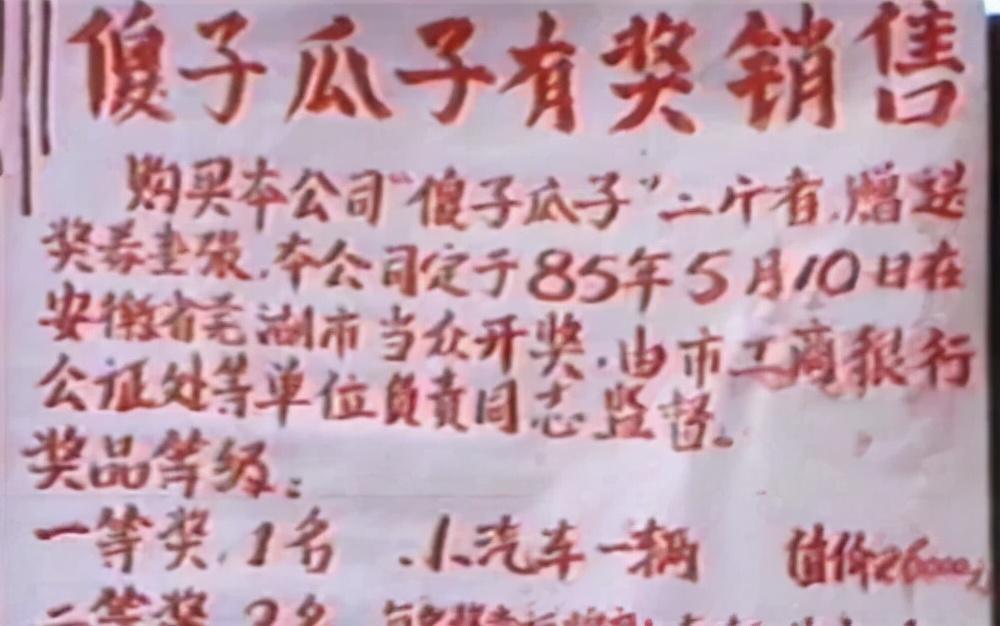 傻子瓜子有奖销售
购买本公司“傻子瓜子”二斤者,赠送
奖券壹张,本公司定于85年5月10日在
安徽省芜湖市当众开奖,由市工商银行
公证处等单位负责同志监督。
奖品等级:
一等奖,1名 小汽车一辆 值价26000元
二等奖